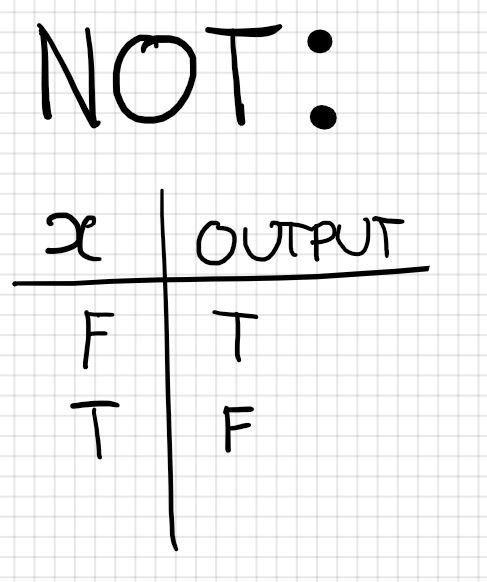 NOT:
x OUTPUT
F T
T F